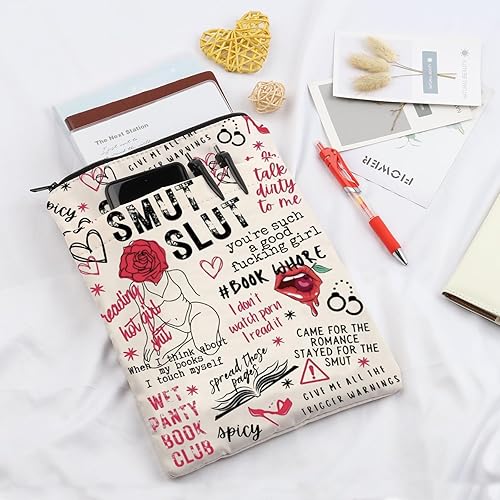 The Next Station
GIVE ME ALL THE
TRIGGER WARNINGS
SMUT
SLUT
talk
dirty
to me
spicy
you're such
a good
fucking girl
#BOOK WHORE
reading
hot girl
shit
I don't
watch porn
I read it
CAME FOR THE
ROMANCE
STAYED FOR THE
SMUT
When I think about
my books
I touch myself
spread those
pages
GIVE ME ALL THE
TRIGGER WARNINGS
WET
PANTY
BOOK
CLUB
spicy
FLOWER